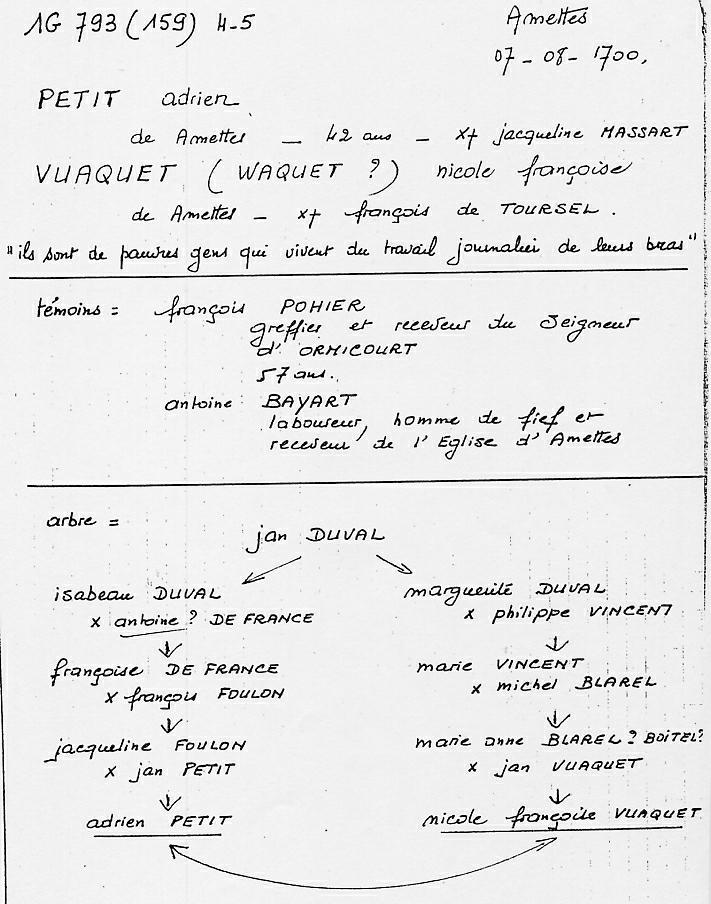 1G 793 (159) 4-5
Amettes
07-08-1700.
PETIT adrien
de Amettes _ 42 ans _ x+ jacqueline MASSART
VUAQUET ( WAQUET ? ) nicole françoise
de Amettes _ x+ françois de TOURSEL .
"ils sont de pauvres gens qui vivent du travail journalier de leurs bras"
témoins = françois POHIER
greffier et receveur du Seigneur
d' ORMICOURT
57 ans.
antoine BAYART
laboureur, homme de fief et
receveur de l' Eglise d' Amettes
arbre =
jan DUVAL
isabeau DUVAL
x antoine ? DE FRANCE
françoise DE FRANCE
x françois FOULON
jacqueline FOULON
x jan PETIT
adrien PETIT
marguerite DUVAL
x philippe VINCENT
marie VINCENT
x michel BLAREL
marie anne BLAREL ? BOITEL ?
x jan VUAQUET
nicole françoise VUAQUET